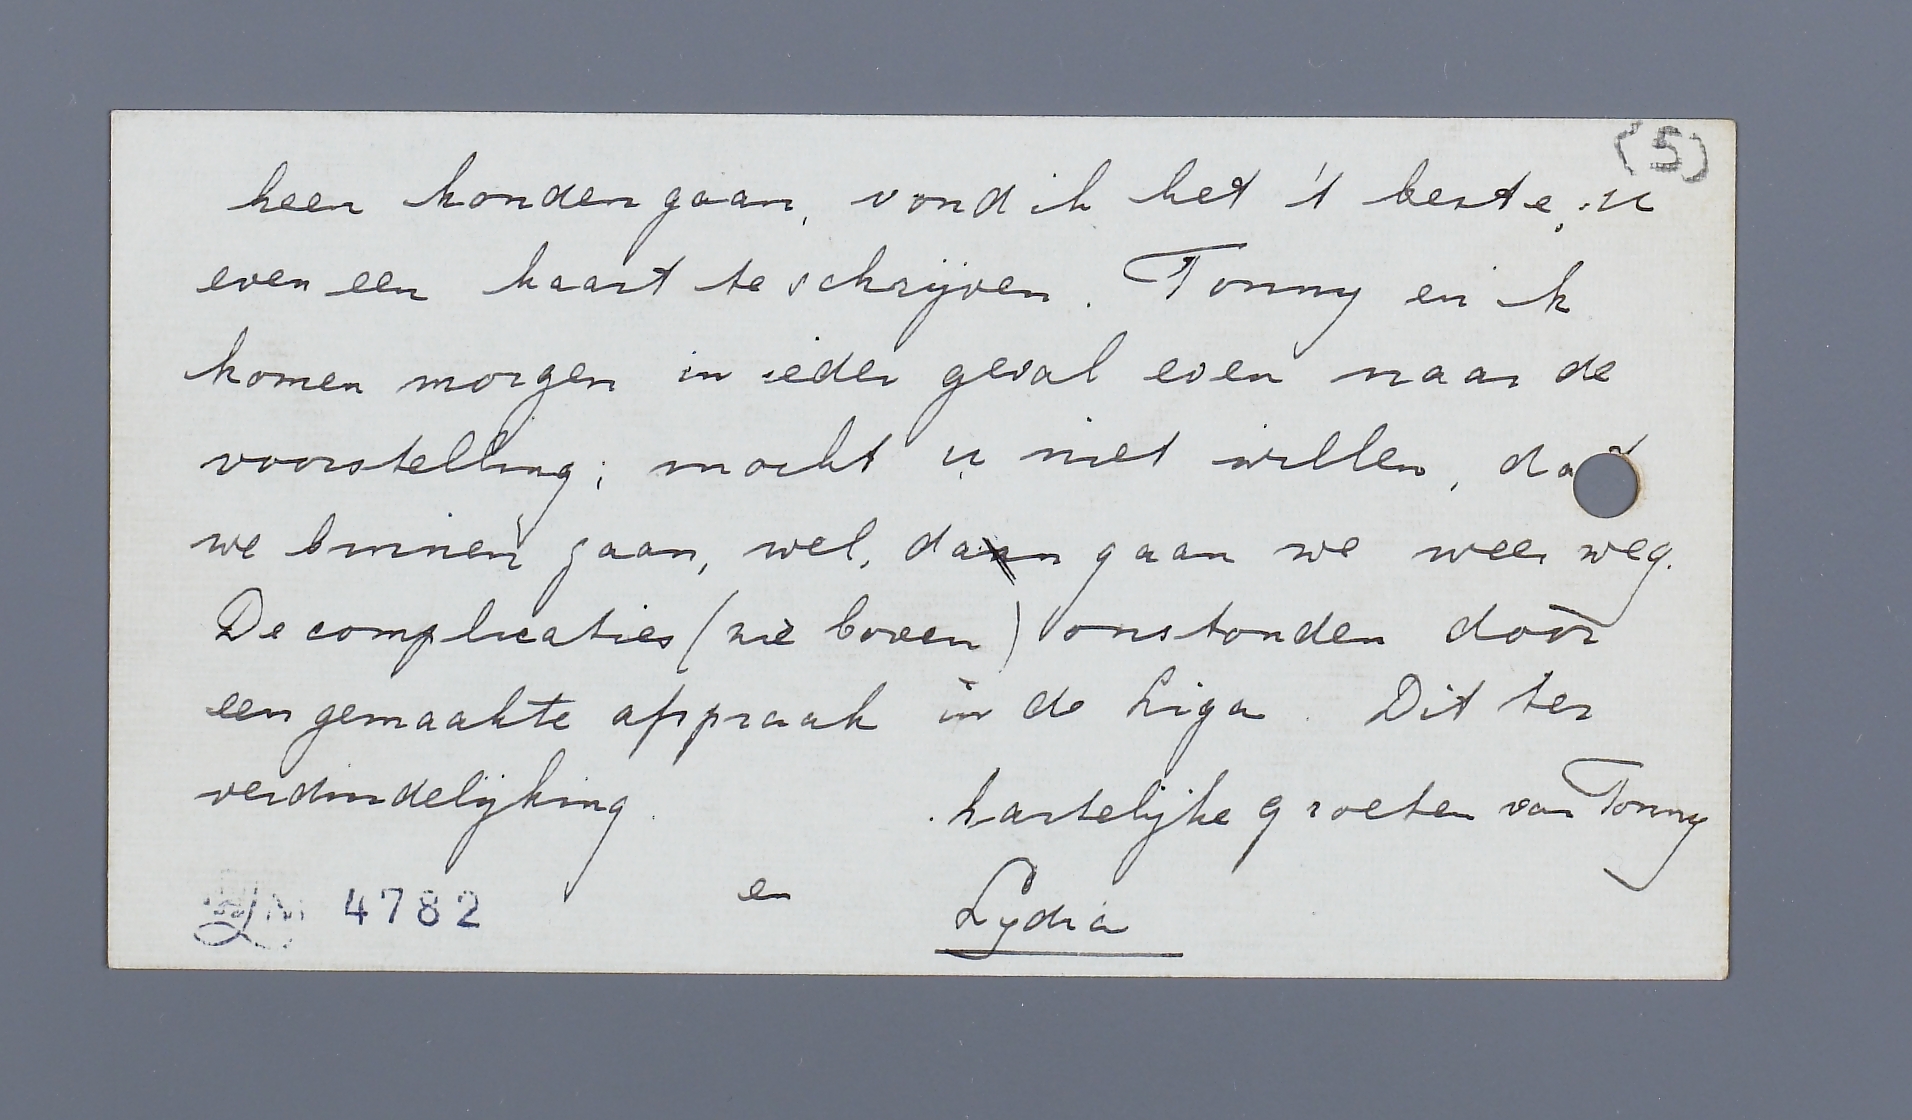 (5)
heen konden gaan, vond ik het 't beste, u
even een kaart te schrijven. Tonny en ik
komen morgen in ieder geval even naar de
voorstelling; mocht u niet willen, dat
we binnen gaan, wel, dan gaan we weer weg.
De complicaties (zie boven) onstonden door
een gemaakte afspraak in de Liga. Dit ter
verduidelijking. hartelijke groeten van Tonny
en Lydia
4782